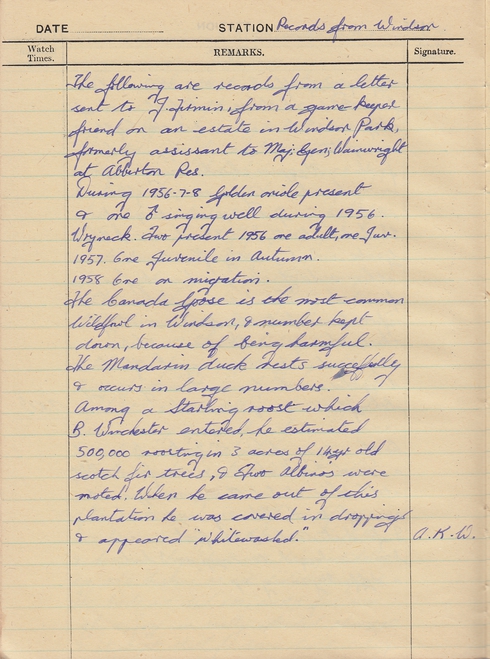 DATE STATION Records from Windsor
Watch Times. REMARKS. Signature.
The following are records from a letter
sent to J. Firmin; from a game keeper
friend on an estate in Windsor Park,
formerly assissant to Maj; Gen; Wainwright
at Abberton Res.
During 1956-7-8 Golden oriole present
& one ♂ singing well during 1956.
Wryneck. Two present 1956 one adult, one Juv.
1957. One Juvenile in Autumn.
1958 One on migration.
The Canada Goose is the most common
Wildfowl in Windsor, & number kept
down, because of being harmful.
The Mandarin duck nests succesfully
& occurs in large numbers.
Among a Starling roost which
B. Winchester entered, he estimated
500,000 roosting in 3 acres of 14yr old
scotch fir trees, & two Albinos were
noted. When he came out of this
plantation he was covered in droppings
& appeared "whitewashed." A.K.W.